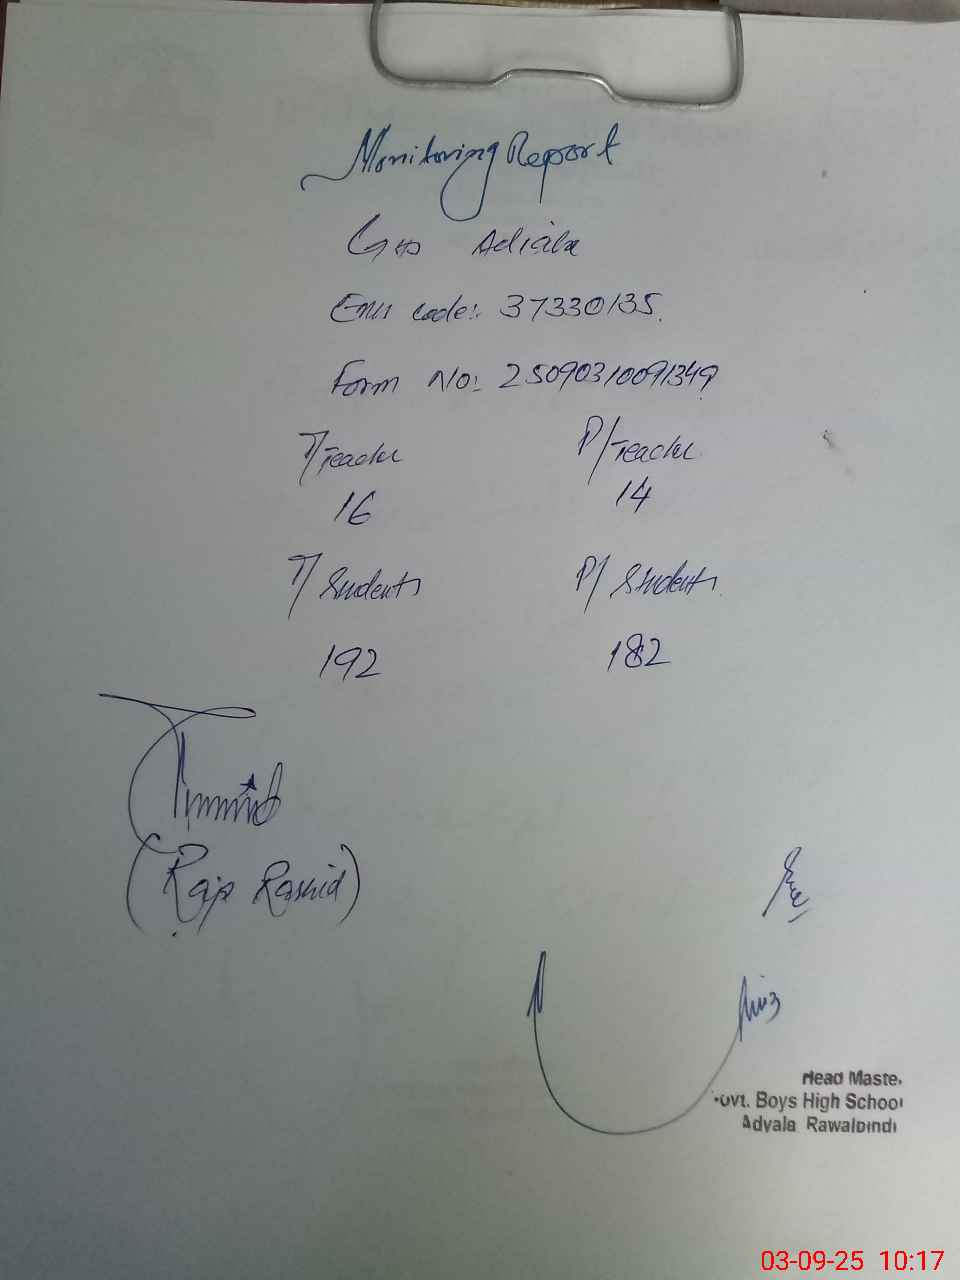 Monitoring Report
GHS Adiala
Emis code:- 37330135.
Form No:- 25090310091349
T/Teacher P/Teacher
16 14
T/Students P/Students.
192 182
(Raja Rashid)
Head Maste.
Govt. Boys High School
Adyala Rawalpindi
03-09-25 10:17